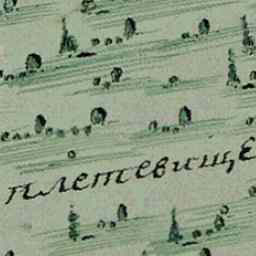 плетевище